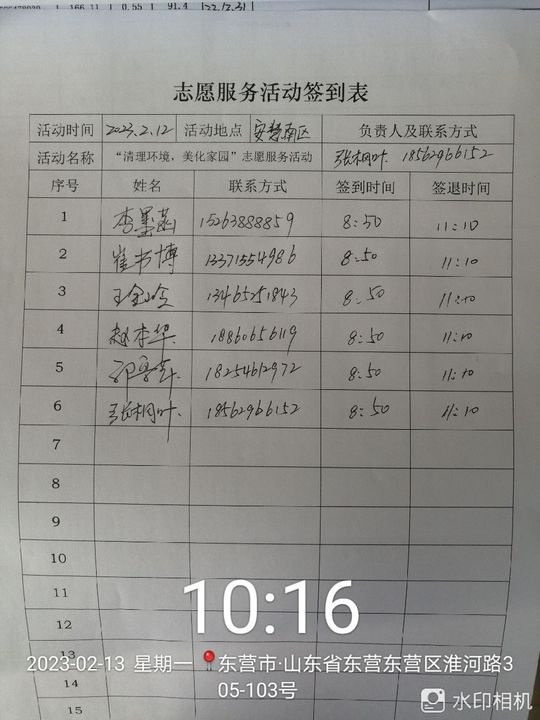 166.11 0.55 91.4 22.12.31
志愿服务活动签到表
活动时间 2023.2.12 活动地点 安慧南区 负责人及联系方式
活动名称 “清理环境，美化家园”志愿服务活动 张桐叶 18562966152
序号 姓名 联系方式 签到时间 签退时间
1 李墨菡 15263888859 8:50 11:10
2 崔书博 13371554986 8:50 11:10
3 王金玲 13465251843 8:50 11:10
4 赵本华 18860656119 8:50 11:10
5 18254612972 8:50 11:10
6 张桐叶 18562966152 8:50 11:10
7
8
9
10
11
12
13
14
15
10:16
2023-02-13 星期一 东营市·山东省东营东营区淮河路3
05-103号
水印相机